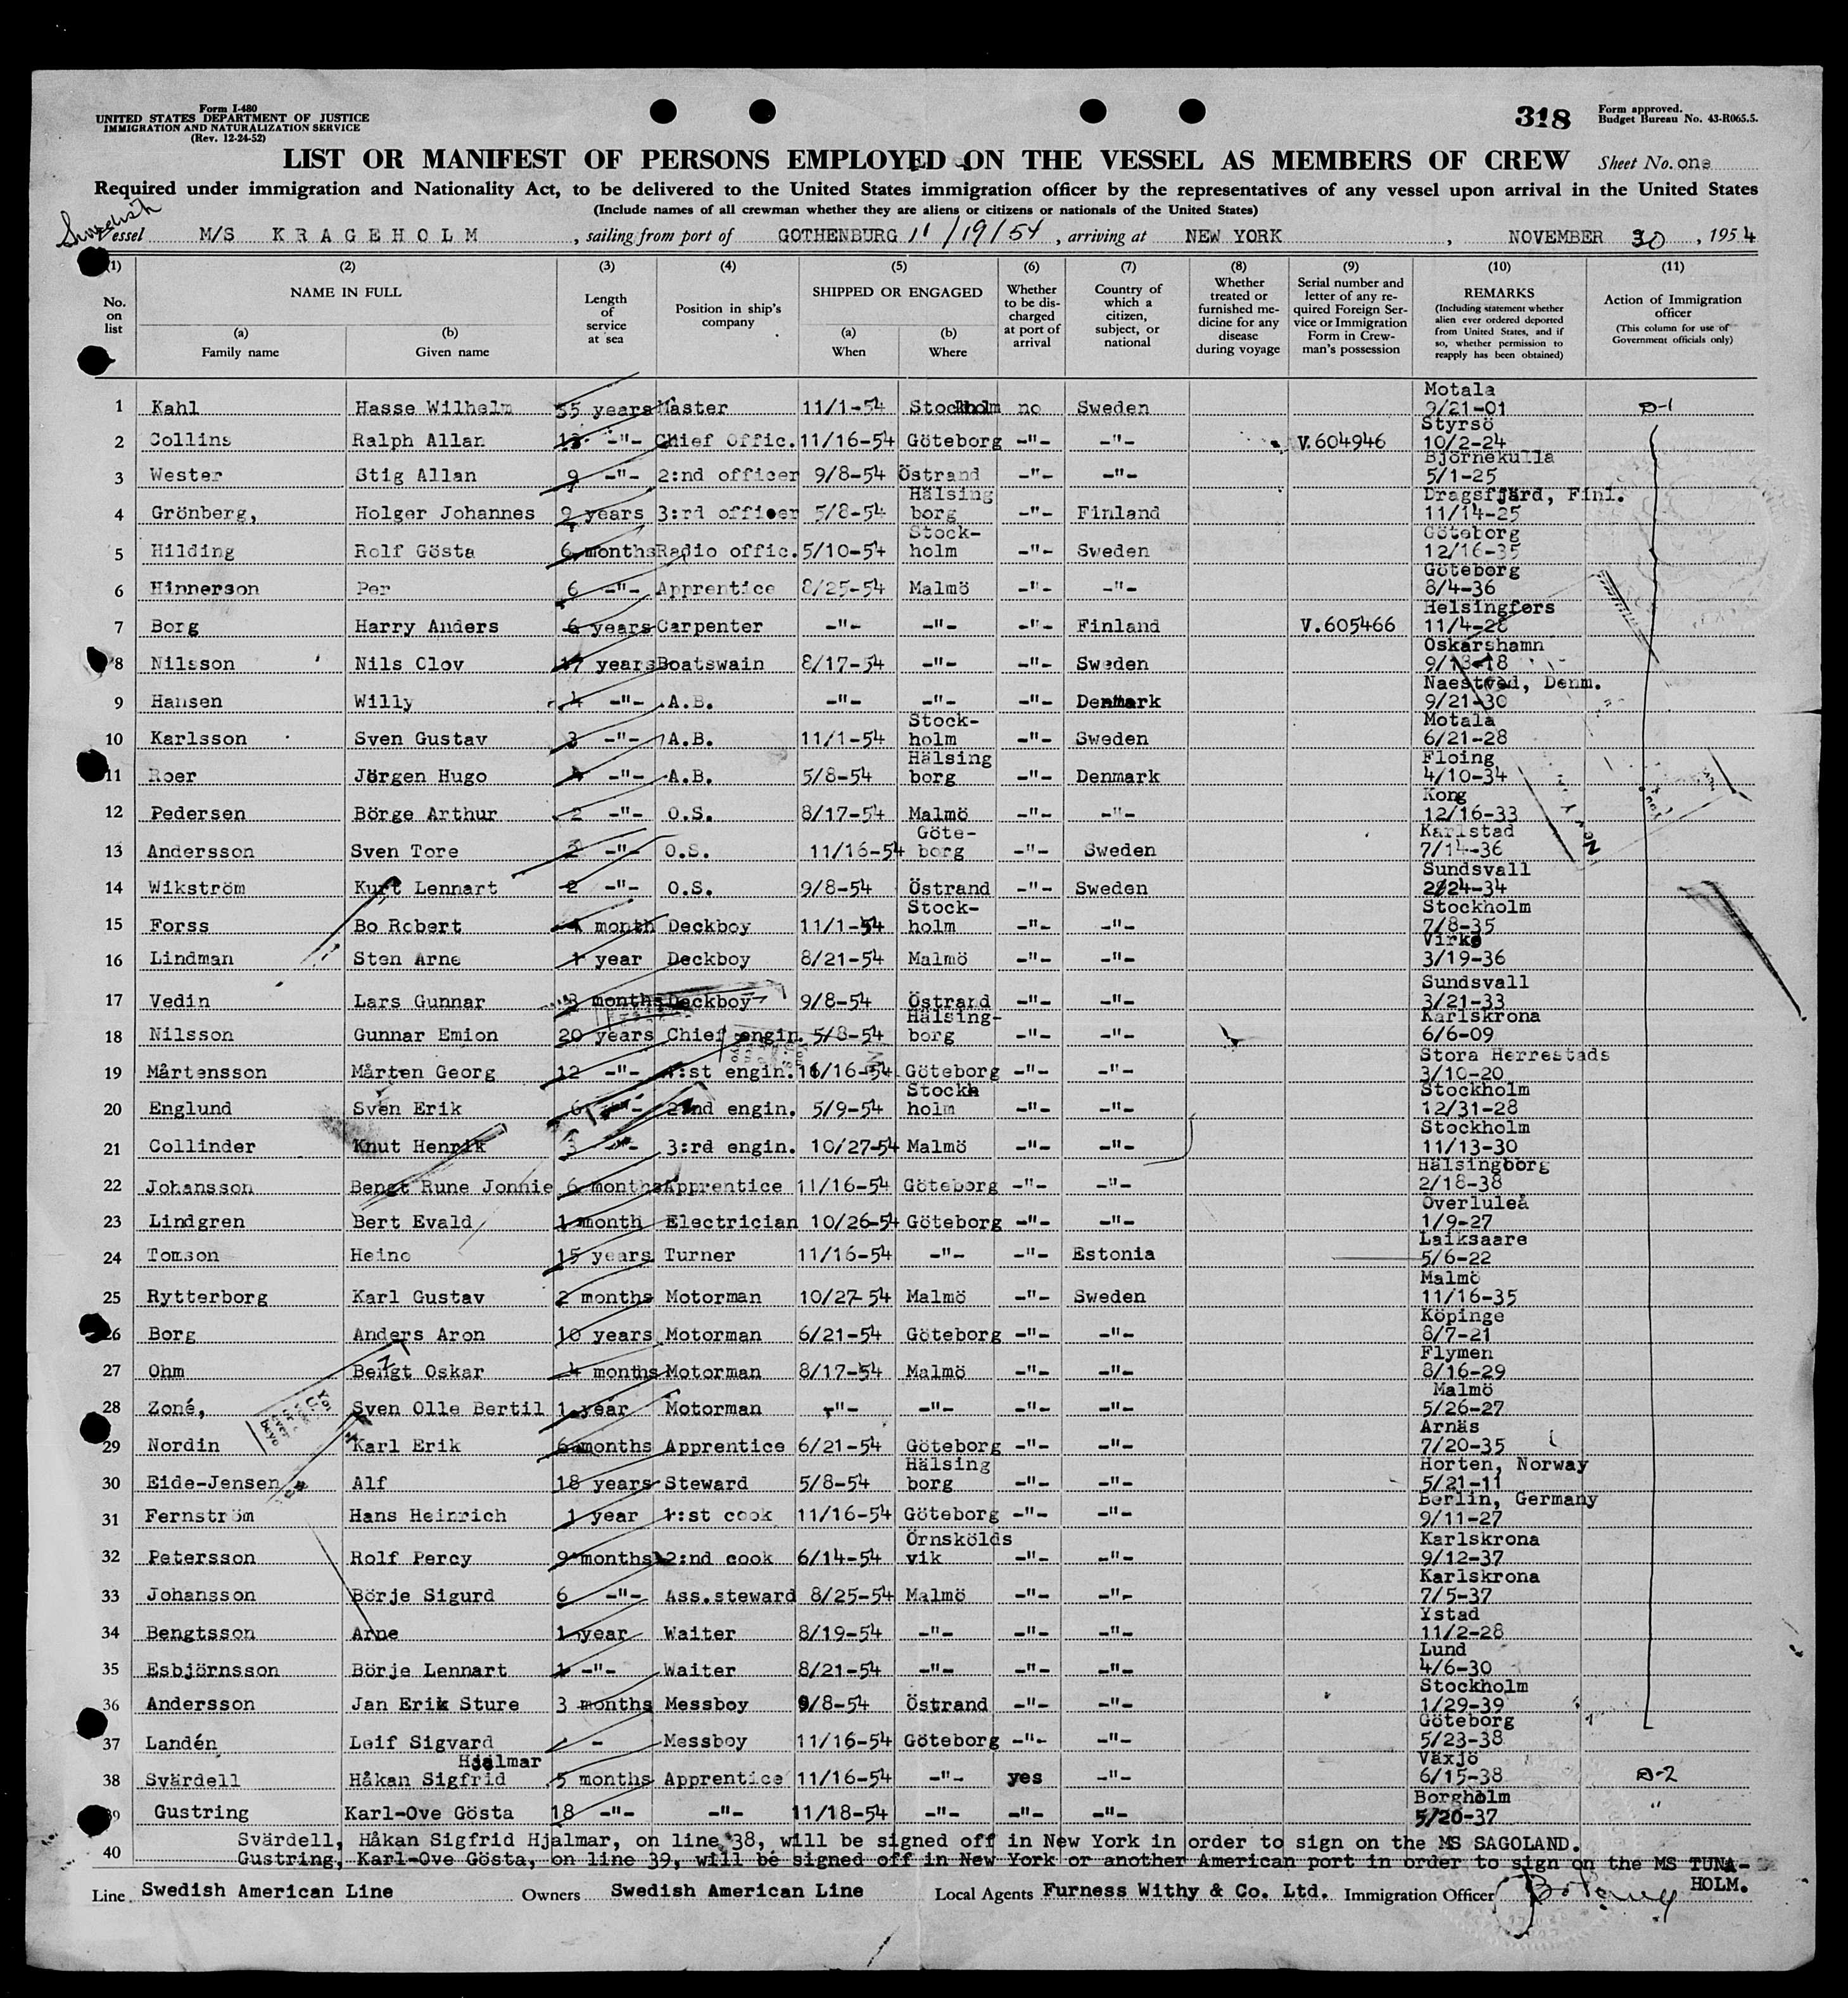 Form I-480
UNITED STATES DEPARTMENT OF JUSTICE
IMMIGRATION AND NATURALIZATION SERVICE
(Rev. 12-24-52)
318
Form approved.
Budget Bureau No. 43-R065.5.
LIST OR MANIFEST OF PERSONS EMPLOYED ON THE VESSEL AS MEMBERS OF CREW Sheet No. one
Required under immigration and Nationality Act, to be delivered to the United States immigration officer by the representatives of any vessel upon arrival in the United States
(Include names of all crewman whether they are aliens or citizens or nationals of the United States)
Swedish
essel M/S KRAGEHOLM, sailing from port of GOTHENBURG 11/19/54, arriving at NEW YORK, NOVEMBER 30, 1954
(1) (2) (3) (4) (5) (6) (7) (8) (9) (10) (11)
No. on list
NAME IN FULL
(a) Family name
(b) Given name
Length of service at sea
Position in ship's company
SHIPPED OR ENGAGED
(a) When
(b) Where
Whether to be discharged at port of arrival
Country of which a citizen, subject, or national
Whether treated or furnished medicine for any disease during voyage
Serial number and letter of any required Foreign Service or Immigration Form in Crewman's possession
REMARKS
(Including statement whether alien ever ordered deported from United States, and if so, whether permission to reapply has been obtained)
Action of Immigration officer
(This column for use of Government officials only)
1 Kahl Hasse Wilhelm 35 years Master 11/1-54 Stockholm no Sweden Motala 9/21-01 D-1
2 Collins Ralph Allan 13 -"- Chief Offic. 11/16-54 Göteborg -"- -"- V.604946 Styrsö 10/2-24
3 Wester Stig Allan 9 -"- 2:nd officer 9/8-54 Östrand -"- -"- Björnekulla 5/1-25
4 Grönberg, Holger Johannes 9 years 3:rd officer 5/8-54 Hälsing borg -"- Finland Dragsfjärd, Finl. 11/14-25
5 Hilding Rolf Gösta 6 months Radio offic. 5/10-54 Stock- holm -"- Sweden Göteborg 12/16-35
6 Hinnerson Per 6 -"- Apprentice 8/25-54 Malmö -"- -"- Göteborg 8/4-36
7 Borg Harry Anders 6 years Carpenter -"- -"- -"- Finland V.605466 Helsingfors 11/4-28
8 Nilsson Nils Olov 17 years Boatswain 8/17-54 -"- -"- Sweden Oskarshamn 9/18-18
9 Hansen Willy 4 -"- A.B. -"- -"- -"- Denmark Naestved, Denm. 9/21-30
10 Karlsson Sven Gustav 3 -"- A.B. 11/1-54 Stock- holm -"- Sweden Motala 6/21-28
11 Roer Jörgen Hugo 4 -"- A.B. 5/8-54 Hälsing borg -"- Denmark Floing 4/10-34
12 Pedersen Börge Arthur 2 -"- O.S. 8/17-54 Malmö -"- -"- Kong 12/16-33
13 Andersson Sven Tore 2 -"- O.S. 11/16-54 Göte- borg -"- Sweden Karlstad 7/14-36
14 Wikström Kurt Lennart 2 -"- O.S. 9/8-54 Östrand -"- Sweden Sundsvall 2/24-34
15 Forss Bo Robert month Deckboy 11/1-54 Stock- holm -"- -"- Stockholm 7/8-35
16 Lindman Sten Arne 1 year Deckboy 8/21-54 Malmö -"- -"- Virke 3/19-36
17 Vedin Lars Gunnar 3 months Deckboy 9/8-54 Östrand -"- -"- Sundsvall 3/21-33
18 Nilsson Gunnar Emion 20 years Chief engin. 5/8-54 Hälsing- borg -"- -"- Karlskrona 6/6-09
19 Mårtensson Mårten Georg 12 -"- 1:st engin. 11/16-54 Göteborg -"- -"- Stora Herrestads 3/10-20
20 Englund Sven Erik 6 -"- 2:nd engin. 5/9-54 Stockh holm -"- -"- Stockholm 12/31-28
21 Collinder Knut Henrik 3 -"- 3:rd engin. 10/27-54 Malmö -"- -"- Stockholm 11/13-30
22 Johansson Bengt Rune Jonnie 6 months Apprentice 11/16-54 Göteborg -"- -"- Hälsingborg 2/18-38
23 Lindgren Bert Evald 1 month Electrician 10/26-54 Göteborg -"- -"- Överluleå 1/9-27
24 Tomson Heino 15 years Turner 11/16-54 -"- -"- Estonia Laiksaare 5/6-22
25 Rytterborg Karl Gustav 2 months Motorman 10/27-54 Malmö -"- Sweden Malmö 11/16-35
26 Borg Anders Aron 10 years Motorman 6/21-54 Göteborg -"- -"- Köpinge 8/7-21
27 Ohm Bengt Oskar 4 months Motorman 8/17-54 Malmö -"- -"- Flymen 8/16-29
28 Zoné, Sven Olle Bertil 1 year Motorman -"- -"- -"- -"- Malmö 5/26-27
29 Nordin Karl Erik 6 months Apprentice 6/21-54 Göteborg -"- -"- Arnäs 7/20-35
30 Eide-Jensen Alf 18 years Steward 5/8-54 Hälsing borg -"- -"- Horten, Norway 5/21-11
31 Fernström Hans Heinrich 1 year 1:st cook 11/16-54 Göteborg -"- -"- Berlin, Germany 9/11-27
32 Petersson Rolf Percy 9 months 2:nd cook 6/14-54 Örnskölds vik -"- -"- Karlskrona 9/12-37
33 Johansson Börje Sigurd 6 -"- Ass.steward 8/25-54 Malmö -"- -"- Karlskrona 7/5-37
34 Bengtsson Arne 1 year Waiter 8/19-54 -"- -"- -"- Ystad 11/2-28
35 Esbjörnsson Börje Lennart 1 -"- Waiter 8/21-54 -"- -"- -"- Lund 4/6-30
36 Andersson Jan Erik Sture 3 months Messboy 9/8-54 Östrand -"- -"- Stockholm 1/29-39
37 Landén Leif Sigvard - - Messboy 11/16-54 Göteborg -"- -"- Göteborg 5/23-38
38 Svärdell Håkan Sigfrid Hjalmar 5 months Apprentice 11/16-54 -"- yes -"- Växjö 6/15-38 D-2
39 Gustring Karl-Ove Gösta 18 -"- -"- 11/18-54 -"- -"- -"- Borgholm 5/20-37 "
Svärdell, Håkan Sigfrid Hjalmar, on line 38, will be signed off in New York in order to sign on the MS SAGOLAND.
40 Gustring, Karl-Ove Gösta, on line 39, will be signed off in New York or another American port in order to sign on the MS TUNA-
HOLM.
Line Swedish American Line Owners Swedish American Line Local Agents Furness Withy & Co. Ltd. Immigration Officer